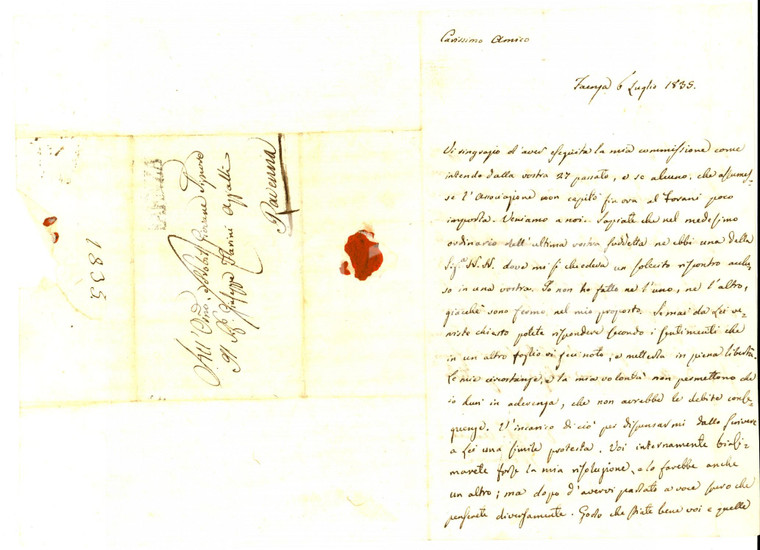 Carissimo Amico
Faenza 6 Luglio 1835.
Vi ringrazio d'aver eseguita la mia commissione come
intendo dalla vostra 27 passato, e se alcuno, che assumes-
se l'Associazione non capitò fin ora al Torani poco
importa. Veniamo a noi. Sappiate che nel medesimo
ordinario dell'ultima vostra suddetta ne ebbi una della
Sig.ra N.N. dove mi si chiedeva un sollecito riscontro acchiu-
so in una vostra. Io non ho fatto nè l'uno, nè l'altro,
giacchè sono fermo nel mio proposto. Se mai da Lei ve-
niste chiesto potete rispondere secondo i sentimenti che
in un altro foglio vi feci noto, e metterla in piena libertà.
Le mie circostanze, e la mia volontà non permettono che
io duri in aderenza, che non avrebbe le debite conse-
guenze. V'incarico di ciò per dispensarmi dallo scrivere
a Lei una simile protesta. Voi internamente biasi-
marete forse la mia risoluzione, e lo farebbe anche
un altro; ma dopo d'avervi parlato a voce spero che
penserete diversamente. Godo che siate bene voi e quelle
All'
Il Sig. Giuseppe
Ravenna
1835